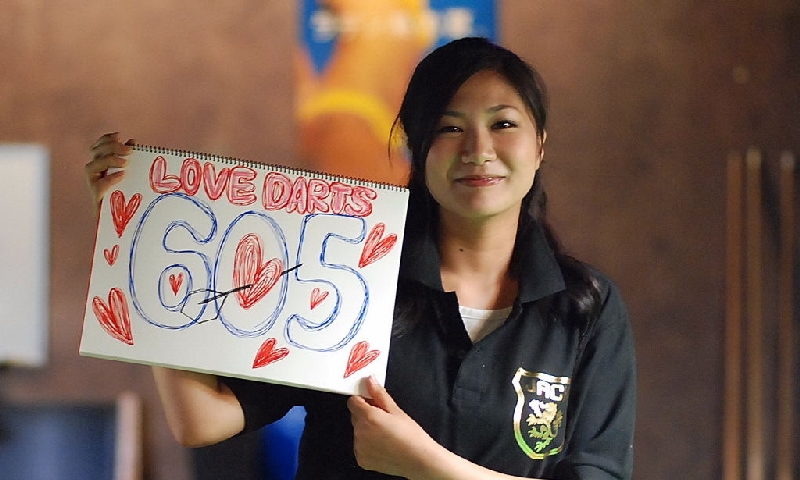 LOVE DARTS
605